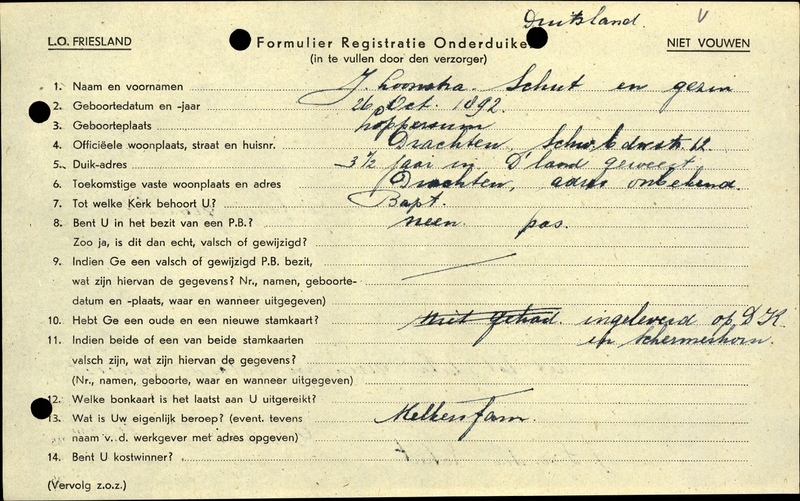 Duitsland. V
L.O. FRIESLAND
Formulier Registratie Onderduike
NIET VOUWEN
(in te vullen door den verzorger)
1. Naam en voornamen J. Loonstra Schut en gezin
2. Geboortedatum en -jaar 26 Oct. 1892.
3. Geboorteplaats Loppersum
4. Officiëele woonplaats, straat en huisnr. Drachten, 12
5. Duik-adres 3 1/2 jaar in D'land geweest
6. Toekomstige vaste woonplaats en adres Drachten, adres onbekend.
7. Tot welke Kerk behoort U? Bapt.
8. Bent U in het bezit van een P.B.? neen pas.
Zoo ja, is dit dan echt, valsch of gewijzigd?
9. Indien Ge een valsch of gewijzigd P.B. bezit,
wat zijn hiervan de gegevens? Nr., namen, geboorte-
datum en -plaats, waar en wanneer uitgegeven)
10. Hebt Ge een oude en een nieuwe stamkaart? niet gehad. ingeleverd op D.K.
11. Indien beide of een van beide stamkaarten in Schermerhorn.
valsch zijn, wat zijn hiervan de gegevens?
(Nr., namen, geboorte, waar en wanneer uitgegeven)
12. Welke bonkaart is het laatst aan U uitgereikt?
13. Wat is Uw eigenlijk beroep? (event. tevens Melkersfam.
naam v. d. werkgever met adres opgeven)
14. Bent U kostwinner?
(Vervolg z.o.z.)